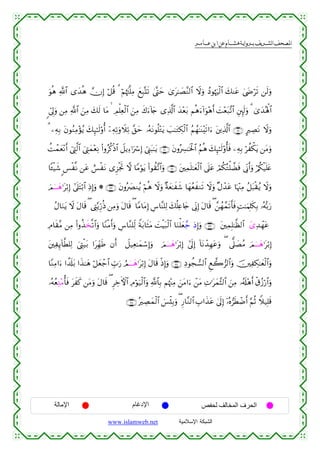 المصحف الشريف برواية هشام عن ابن عامر
وَلَن تَرْضَىٰ عَنكَ ٱلْيَهُودُ وَلَا ٱلنَّصَٰرَىٰ حَتَّىٰ تَتَّبِعَ مِلَّتَهُمْ ۗ قُلْ إِنَّ هُدَى ٱللَّهِ هُوَ
ٱلْهُدَىٰ ۗ وَلَئِنِ ٱتَّبَعْتَ أَهْوَآءَهُم بَعْدَ ٱلَّذِى جَآءَكَ مِنَ ٱلْعِلْمِ ۙ مَا لَكَ مِنَ ٱللَّهِ مِن وَلِىٍّ
وَلَا نَصِيرٍ ٱلَّذِينَ ءَاتَيْنَٰهُمُ ٱلْكِتَٰبَ يَتْلُونَهُۥ حَقَّ تِلَاوَتِهِۦٓ أُو۟لَٰٓئِكَ يُؤْمِنُونَ بِهِۦ ۗ
وَمَن يَكْفُرْ بِهِۦ فَأُو۟لَٰٓئِكَ هُمُ ٱلْخَٰسِرُونَ يَٰبَنِىٓ إِسْرَٰٓءِيلَ ٱذْكُرُوا۟ نِعْمَتِىَ ٱلَّتِىٓ أَنْعَمْتُ
عَلَيْكُمْ وَأَنِّى فَضَّلْتُكُمْ عَلَى ٱلْعَٰلَمِينَ وَٱتَّقُوا۟ يَوْمًا لَّا تَجْزِى نَفْسٌ عَن نَّفْسٍ شَيْـًٔا
وَلَا يُقْبَلُ مِنْهَا عَدْلٌ وَلَا تَنفَعُهَا شَفَٰعَةٌ وَلَا هُمْ يُنصَرُونَ ۞ وَإِذِ ٱبْتَلَىٰٓ إِبْرَٰهَٰمَ
رَبُّهُۥ بِكَلِمَٰتٍ فَأَتَمَّهُنَّ ۖ قَالَ إِنِّى جَاعِلُكَ لِلنَّاسِ إِمَامًا ۖ قَالَ وَمِن ذُرِّيَّتِى ۖ قَالَ لَا يَنَالُ
عَهْدِىَ ٱلظَّٰلِمِينَ وَإِذْ جَعَلْنَا ٱلْبَيْتَ مَثَابَةً لِّلنَّاسِ وَأَمْنًا وَٱتَّخَذُوا۟ مِن مَّقَامِ
إِبْرَٰهَٰمَ مُصَلًّى ۖ وَعَهِدْنَآ إِلَىٰٓ إِبْرَٰهَٰمَ وَإِسْمَٰعِيلَ أَن طَهِّرَا بَيْتِىَ لِلطَّآئِفِينَ
وَٱلْعَٰكِفِينَ وَٱلرُّكَّعِ ٱلسُّجُودِ وَإِذْ قَالَ إِبْرَٰهَٰمُ رَبِّ ٱجْعَلْ هَٰذَا بَلَدًا ءَامِنًا
وَٱرْزُقْ أَهْلَهُۥ مِنَ ٱلثَّمَرَٰتِ مَنْ ءَامَنَ مِنْهُم بِٱللَّهِ وَٱلْيَوْمِ ٱلْءَاخِرِ ۖ قَالَ وَمَن كَفَرَ فَأُمَتِّعُهُۥ
قَلِيلًا ثُمَّ أَضْطَرُّهُۥٓ إِلَىٰ عَذَابِ ٱلنَّارِ ۖ وَبِئْسَ ٱلْمَصِيرُ
الحرف المخالف لحفص الإدغام الإمالة
الشبكة الإسلامية www.islamweb.net